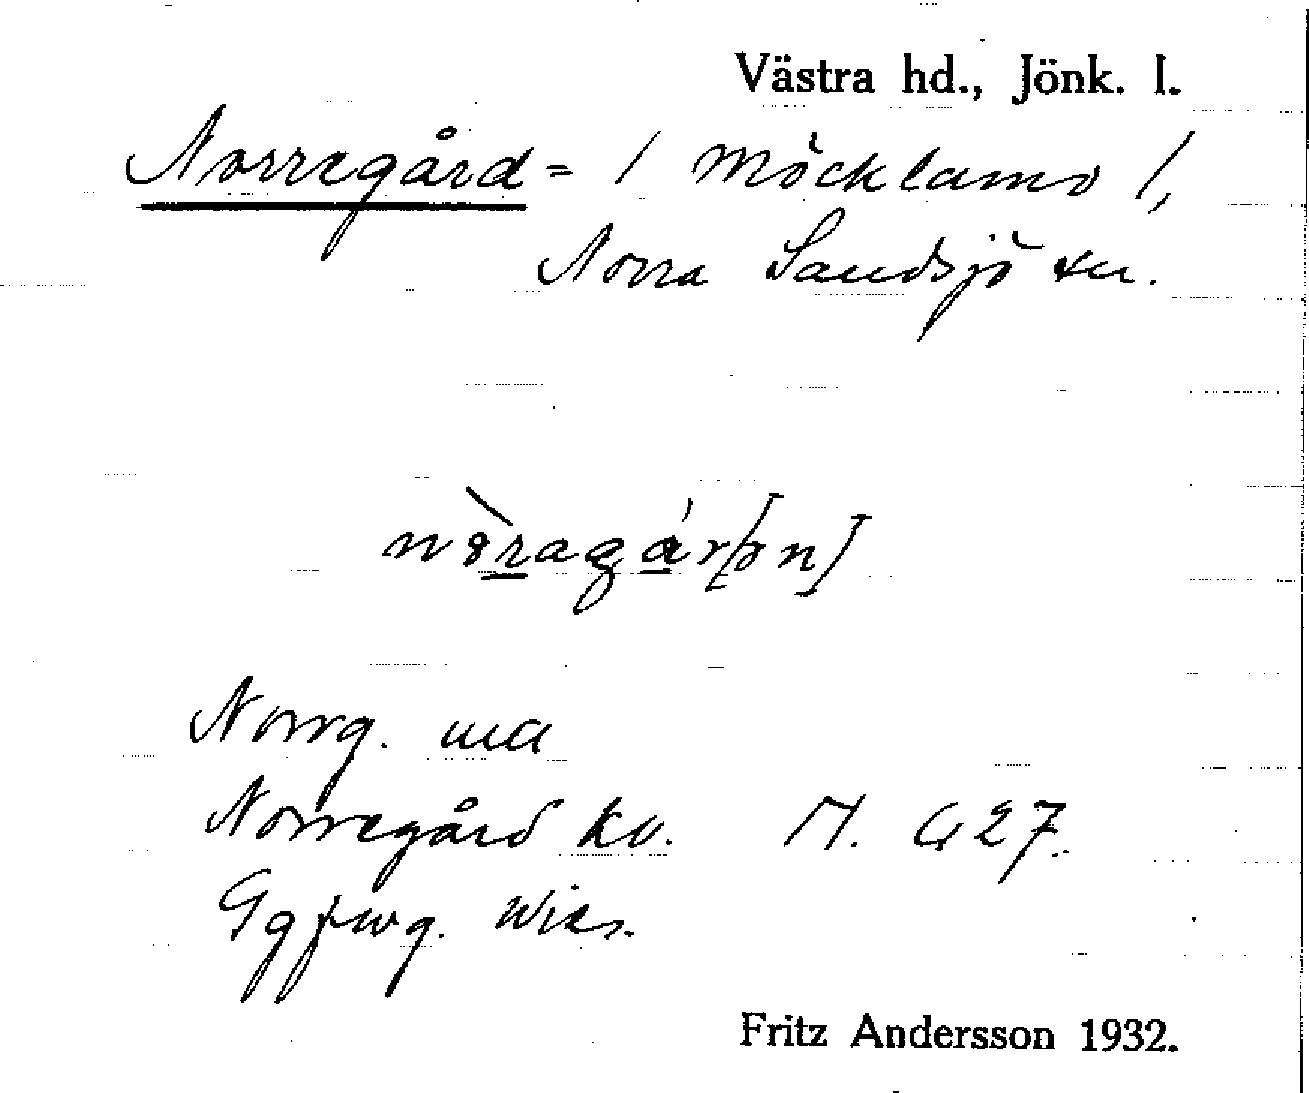 Västra hd., Jönk. l.
Norregård = / Möcklamo /,
Norra Sandsjö sn.
nòragár[ən]
Norrg. ma
Norregård kv. M. G 27.
Fritz Andersson 1932.